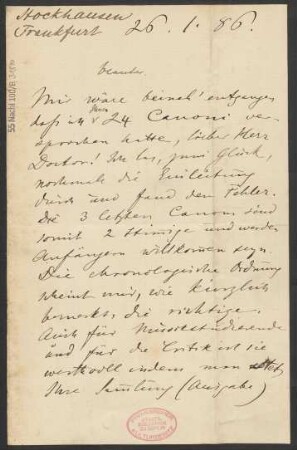 Stockhausen
Frankfurt 26. 1. 86.
Mir wäre beinah' entgangen
daß ich Ihnen 24 Canons ver-
sprochen hatte, lieber Herr
Doctor! Ich las, zum Glück,
nochmals die Einleitung
durch und fand den Fehler.
Die 3 letzten Canons sind
somit 2 stimmige und werden
Anfängern willkommen seyn.
Die chronologische Ordnung
scheint mir, wie kürzlich
bemerkt, die richtige.
Auch für Musikstudierende
und für die Critik ist sie
werthvoll indem man
Ihre Samlung (Ausgabe)
55 Nachl 100/B